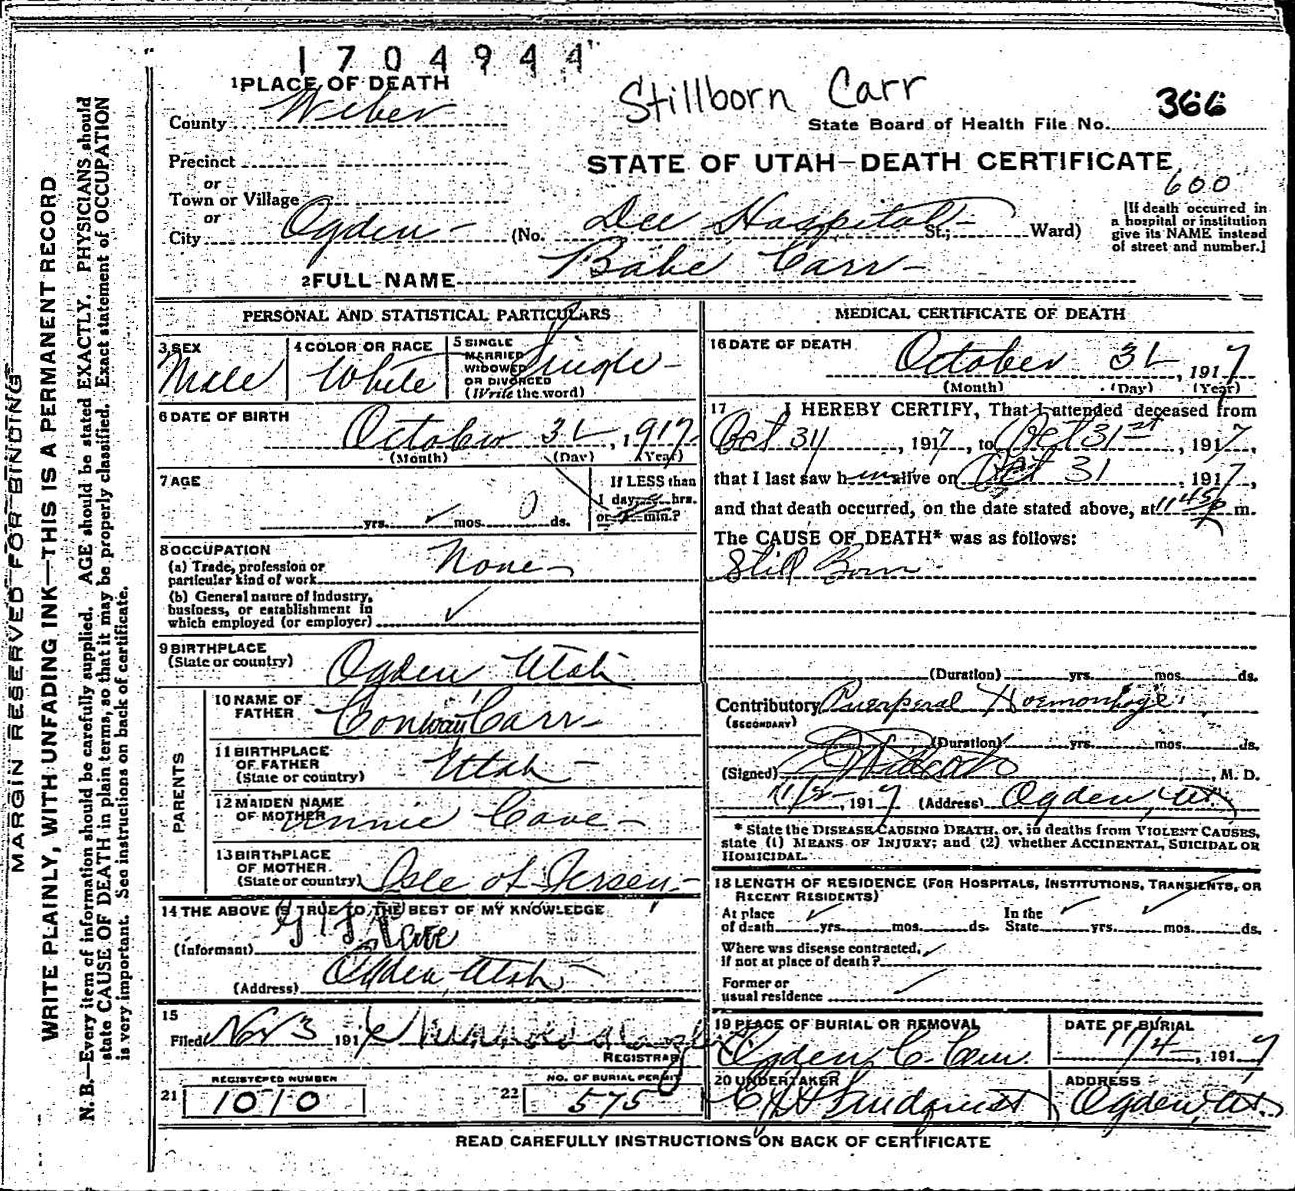 1704944
Stillborn Carr
366
1 PLACE OF DEATH
County Weber
State Board of Health File No.
Precinct
STATE OF UTAH—DEATH CERTIFICATE
or
Town or Village
600
or
City Ogden (No. Dee Hospital St.; Ward)
[If death occurred in
a hospital or institution
give its NAME instead
of street and number.]
2 FULL NAME Babe Carr
PERSONAL AND STATISTICAL PARTICULARS
3 SEX
Male
4 COLOR OR RACE
White
5 SINGLE
MARRIED
WIDOWED
OR DIVORCED
(Write the word)
Single
6 DATE OF BIRTH
October 31, 1917
(Month) (Day) (Year)
7 AGE
yrs. mos. 0 ds.
If LESS than
1 day, hrs.
or min.?
8 OCCUPATION
(a) Trade, profession or
particular kind of work None
(b) General nature of industry,
business, or establishment in
which employed (or employer)
9 BIRTHPLACE
(State or country) Ogden Utah
PARENTS
10 NAME OF
FATHER Conway Carr
11 BIRTHPLACE
OF FATHER
(State or country) Utah
12 MAIDEN NAME
OF MOTHER Annie Cave
13 BIRTHPLACE
OF MOTHER
(State or country) Isle of Jersey
14 THE ABOVE IS TRUE TO THE BEST OF MY KNOWLEDGE
(Informant)
(Address) Ogden, Utah
15
Filed Nov 3 191
REGISTRAR
21 REGISTERED NUMBER
1010
22 NO. OF BURIAL PERMIT
575
MEDICAL CERTIFICATE OF DEATH
16 DATE OF DEATH
October 31, 1917
(Month) (Day) (Year)
17 I HEREBY CERTIFY, That I attended deceased from
Oct 31, 1917, to Oct 31st, 1917,
that I last saw him alive on Oct 31, 1917,
and that death occurred, on the date stated above, at 11 45 p m.
The CAUSE OF DEATH* was as follows:
Still Born
(Duration) yrs. mos. ds.
Contributory Puerperal Hoemorrhage
(SECONDARY)
(Duration) yrs. mos. ds.
(Signed) M. D.
11/2, 1917 (Address) Ogden, Ut.
* State the DISEASE CAUSING DEATH, or, in deaths from VIOLENT CAUSES,
state (1) MEANS OF INJURY; and (2) whether ACCIDENTAL, SUICIDAL OR
HOMICIDAL.
18 LENGTH OF RESIDENCE (FOR HOSPITALS, INSTITUTIONS, TRANSIENTS, OR
RECENT RESIDENTS)
At place
of death yrs. mos. ds.
In the
State yrs. mos. ds.
Where was disease contracted,
if not at place of death?
Former or
usual residence
19 PLACE OF BURIAL OR REMOVAL
Ogden C. Cem.
DATE OF BURIAL
11/4, 1917
20 UNDERTAKER
Lindquist
ADDRESS
Ogden, Ut.
READ CAREFULLY INSTRUCTIONS ON BACK OF CERTIFICATE
MARGIN RESERVED FOR BINDING
WRITE PLAINLY, WITH UNFADING INK—THIS IS A PERMANENT RECORD
N. B.—Every item of information should be carefully supplied. AGE should be stated EXACTLY. PHYSICIANS should
state CAUSE OF DEATH in plain terms, so that it may be properly classified. Exact statement of OCCUPATION
is very important. See instructions on back of certificate.